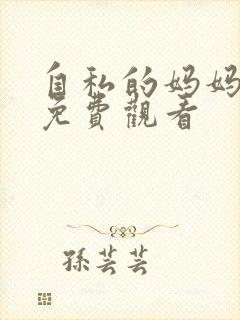 自私的妈妈
免費觀看
孫芸芸